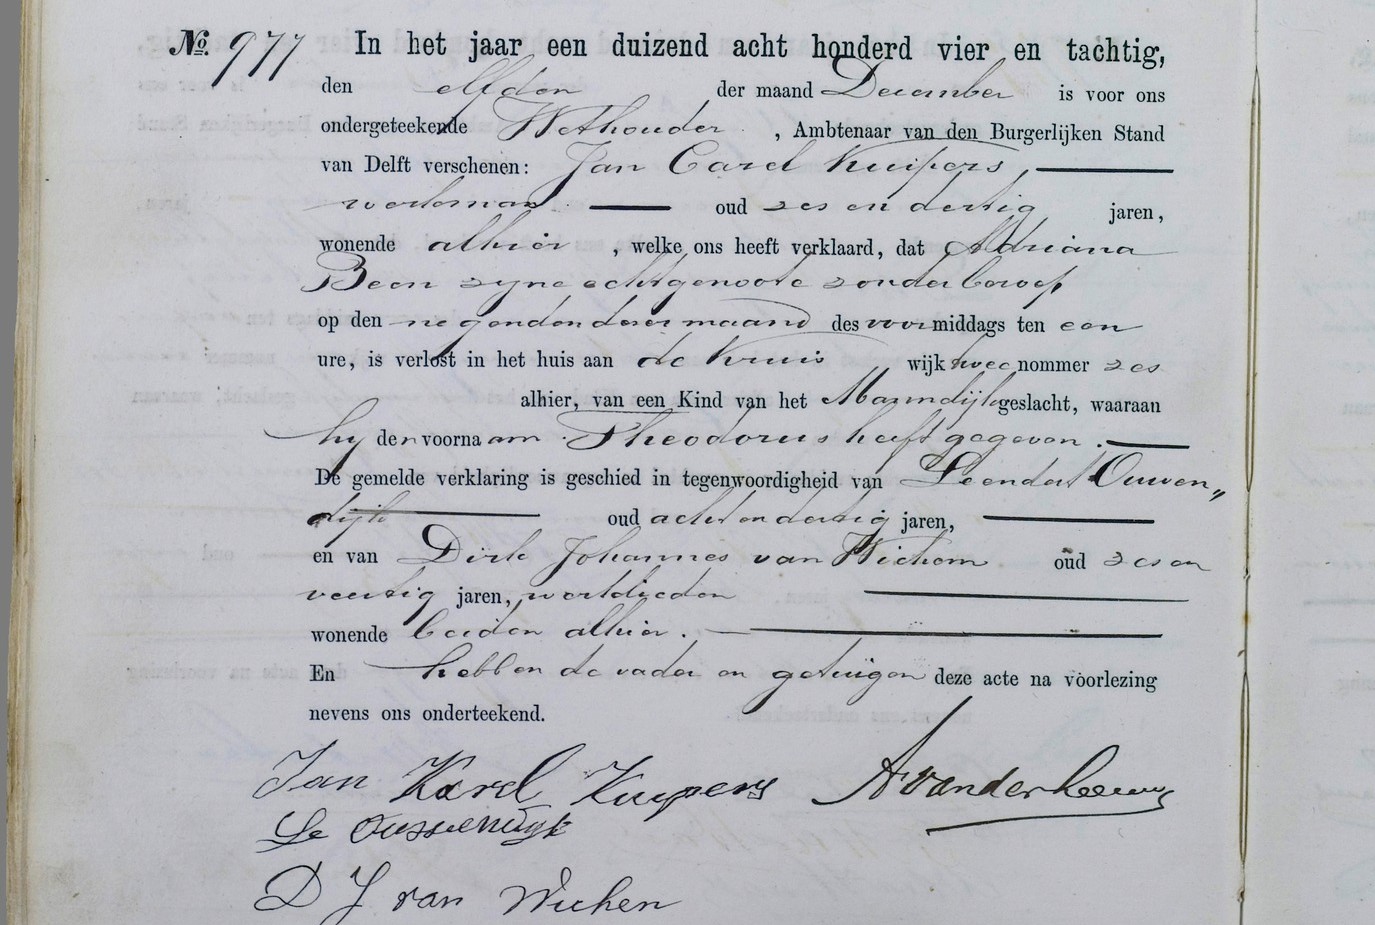 No. 977 In het jaar een duizend acht honderd vier en tachtig,
den elfden der maand December is voor ons
ondergeteekende Wethouder, Ambtenaar van den Burgerlijken Stand
van Delft verschenen: Jan Carel Kuipers,
werkman oud zes en dertig jaren,
wonende alhier, welke ons heeft verklaard, dat Adriana
Been zyne echtgenoote zonder beroep
op den negenden dezer maand des voormiddags ten een
ure, is verlost in het huis aan de Kruis wijk twee nommer zes
alhier, van een Kind van het Manndijk geslacht, waaraan
hy den voornaam Theodorus heeft gegeven.
De gemelde verklaring is geschied in tegenwoordigheid van Leendert Ouwen„
dijk oud acht en dertig jaren,
en van Dirk Johannes van Wichem oud zes en
veertig jaren, werklieden
wonende beiden alhier.
En hebben de vader en getuigen deze acte na voorlezing
nevens ons onderteekend.
Jan Karel Kuypers AvanderLeeuw
Le Ouwendijk
D J van Wichen